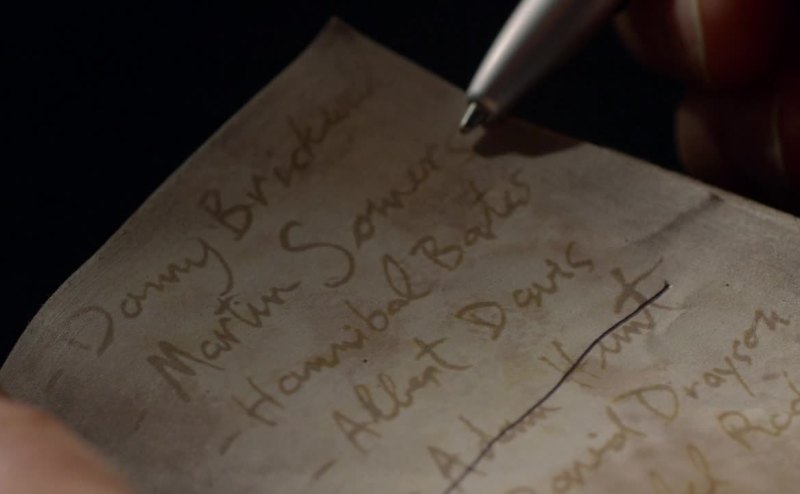 Danny Brickwell
Martin Somers
- Hannibal Bates
- Albert Davis
Adam Hunt
David Drayson